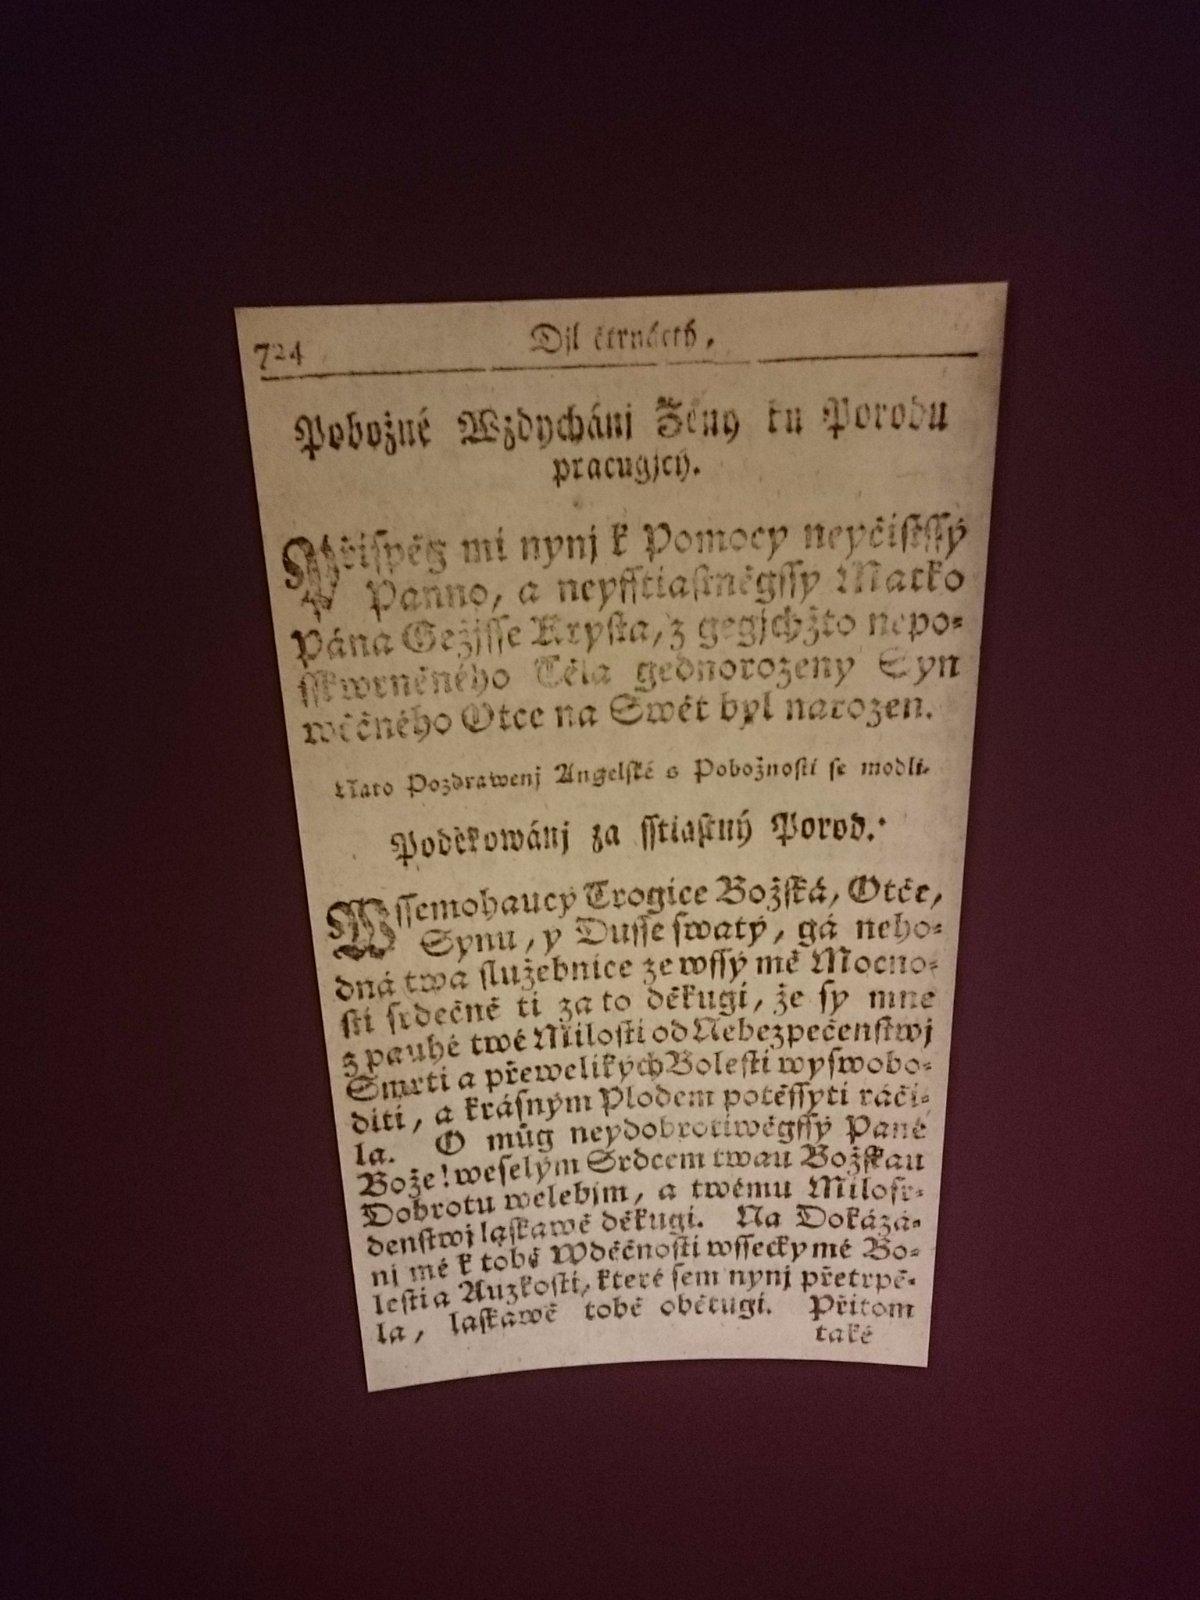 724 Djl čtrnáctý.
Pobožné Wzdychánj Ženy ku Porodu
pracugjcý.
Přiſpěg mi nynj k Pomocy neyčiſtſſý
Panno, a neyſſtiaſtněgſſy Matko
Pána Gežjſſe Kryſta, z gegjchžto nepo-
ſſkwrněného Těla gednorozeny Syn
wěčného Otce na Swět byl narozen.
Nato Pozdrawenj Angelſké s Pobožnoſti ſe modli.
Poděkowánj za ſſtiaſtný Porod.
Wſſemohaucý Trogice Božſká, Otče,
Synu, y Duſſe ſwatý, gá neho-
dná twa ſlužebnice ze wſſý mé Mocno-
ſti ſrdečně ti za to děkugi, že ſy mne
z pauhé twé Miloſti od Nebezpečenſtwj
Smrti a přewelikých Boleſti wyſwobo-
diti, a kráſným Plodem potěſſyti ráči-
la. O můg neydobrotiwěgſſý Pane
Bože! weſelým Srdcem twau Božſkau
Dobrotu welebjm, a twému Miloſr-
denſtwj laſkawě děkugi. Na Dokázá-
nj mé k tobě Wděčnoſti wſſecky mé Bo-
leſti a Auzkoſti, které ſem nynj přetrpě-
la, laſkawě tobě obětugi. Přitom
také